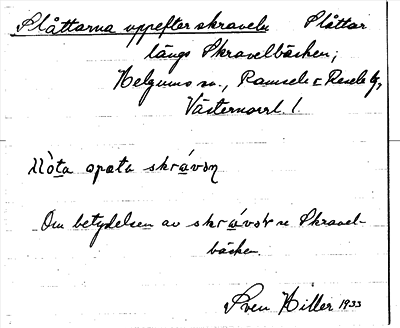 Slåttarna uppefter skraveln Slåttar
längs Skravelbäcken;
Helgums sn., Ramsele o Resele tg,
Västernorrl. l
slòta opɐtə skrávəɳ
Om betydelsen av skrávəɭ se Skravel-
bäcken.
Sven Hiller 1933